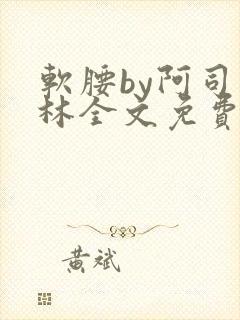 軟腰by阿司
林全文免費
黃斌